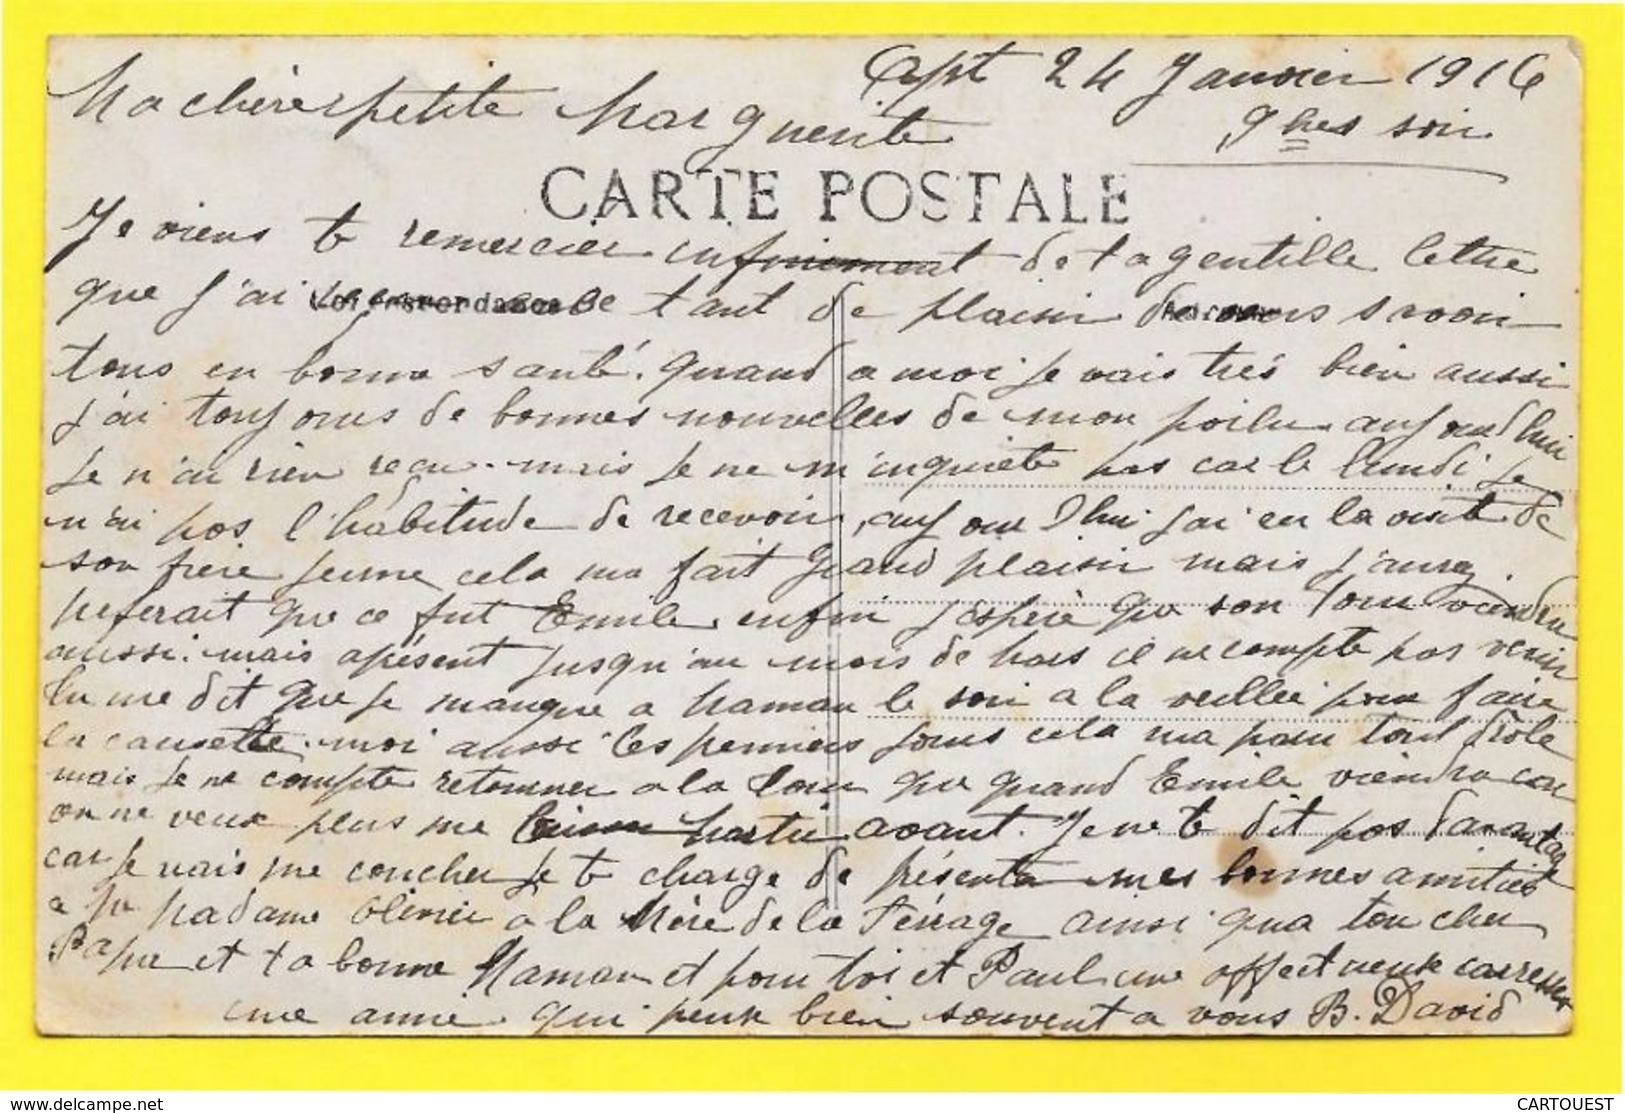 Apt 24 Janvier 1916
Ma chère petite Marguerite
9 hes soir
CARTE POSTALE
Je viens te remercier infiniment de ta gentille lettre
que j'ai tant de plaisir de vous savoir
tous en bonne santé. quand a moi je vais trés bien aussi
j'ai toujours de bonnes nouvelles de mon poilu aujourd'hui
je n'ai rien recu. mais je ne m'inquiete pas car le lundi je
n'ai pas l'habitude de recevoir, aujourd'hui j'ai eu la visite de
son frère jeune cela ma fait grand plaisir mais j'aurez
preferait que ce fut Emile. enfin j'espère que son tour viendra
aussi. mais apésent jusqu'au mois de Mars il ne compte pas venir
tu me dit que je manque a Maman le soir a la veillée pour faire
la causette. moi aussi les permiers jours cela ma paru tout drole
mais je ne compte retourner a la Tour que quand Emile viendra car
on ne veux plus me laisser partir avant. Je ne te dit pas davantage
car je vais me coucher je te charge de présenter mes bonnes amitiés
a Madame Olivier a la Mère de la Ferrage ainsi qua ton cher
Papa et ta bonne Maman et pour toi et Paul une affectueuse caresses
une amie qui pense bien souvent a vous B. David
CARTOUEST
https://www.delcampe.net